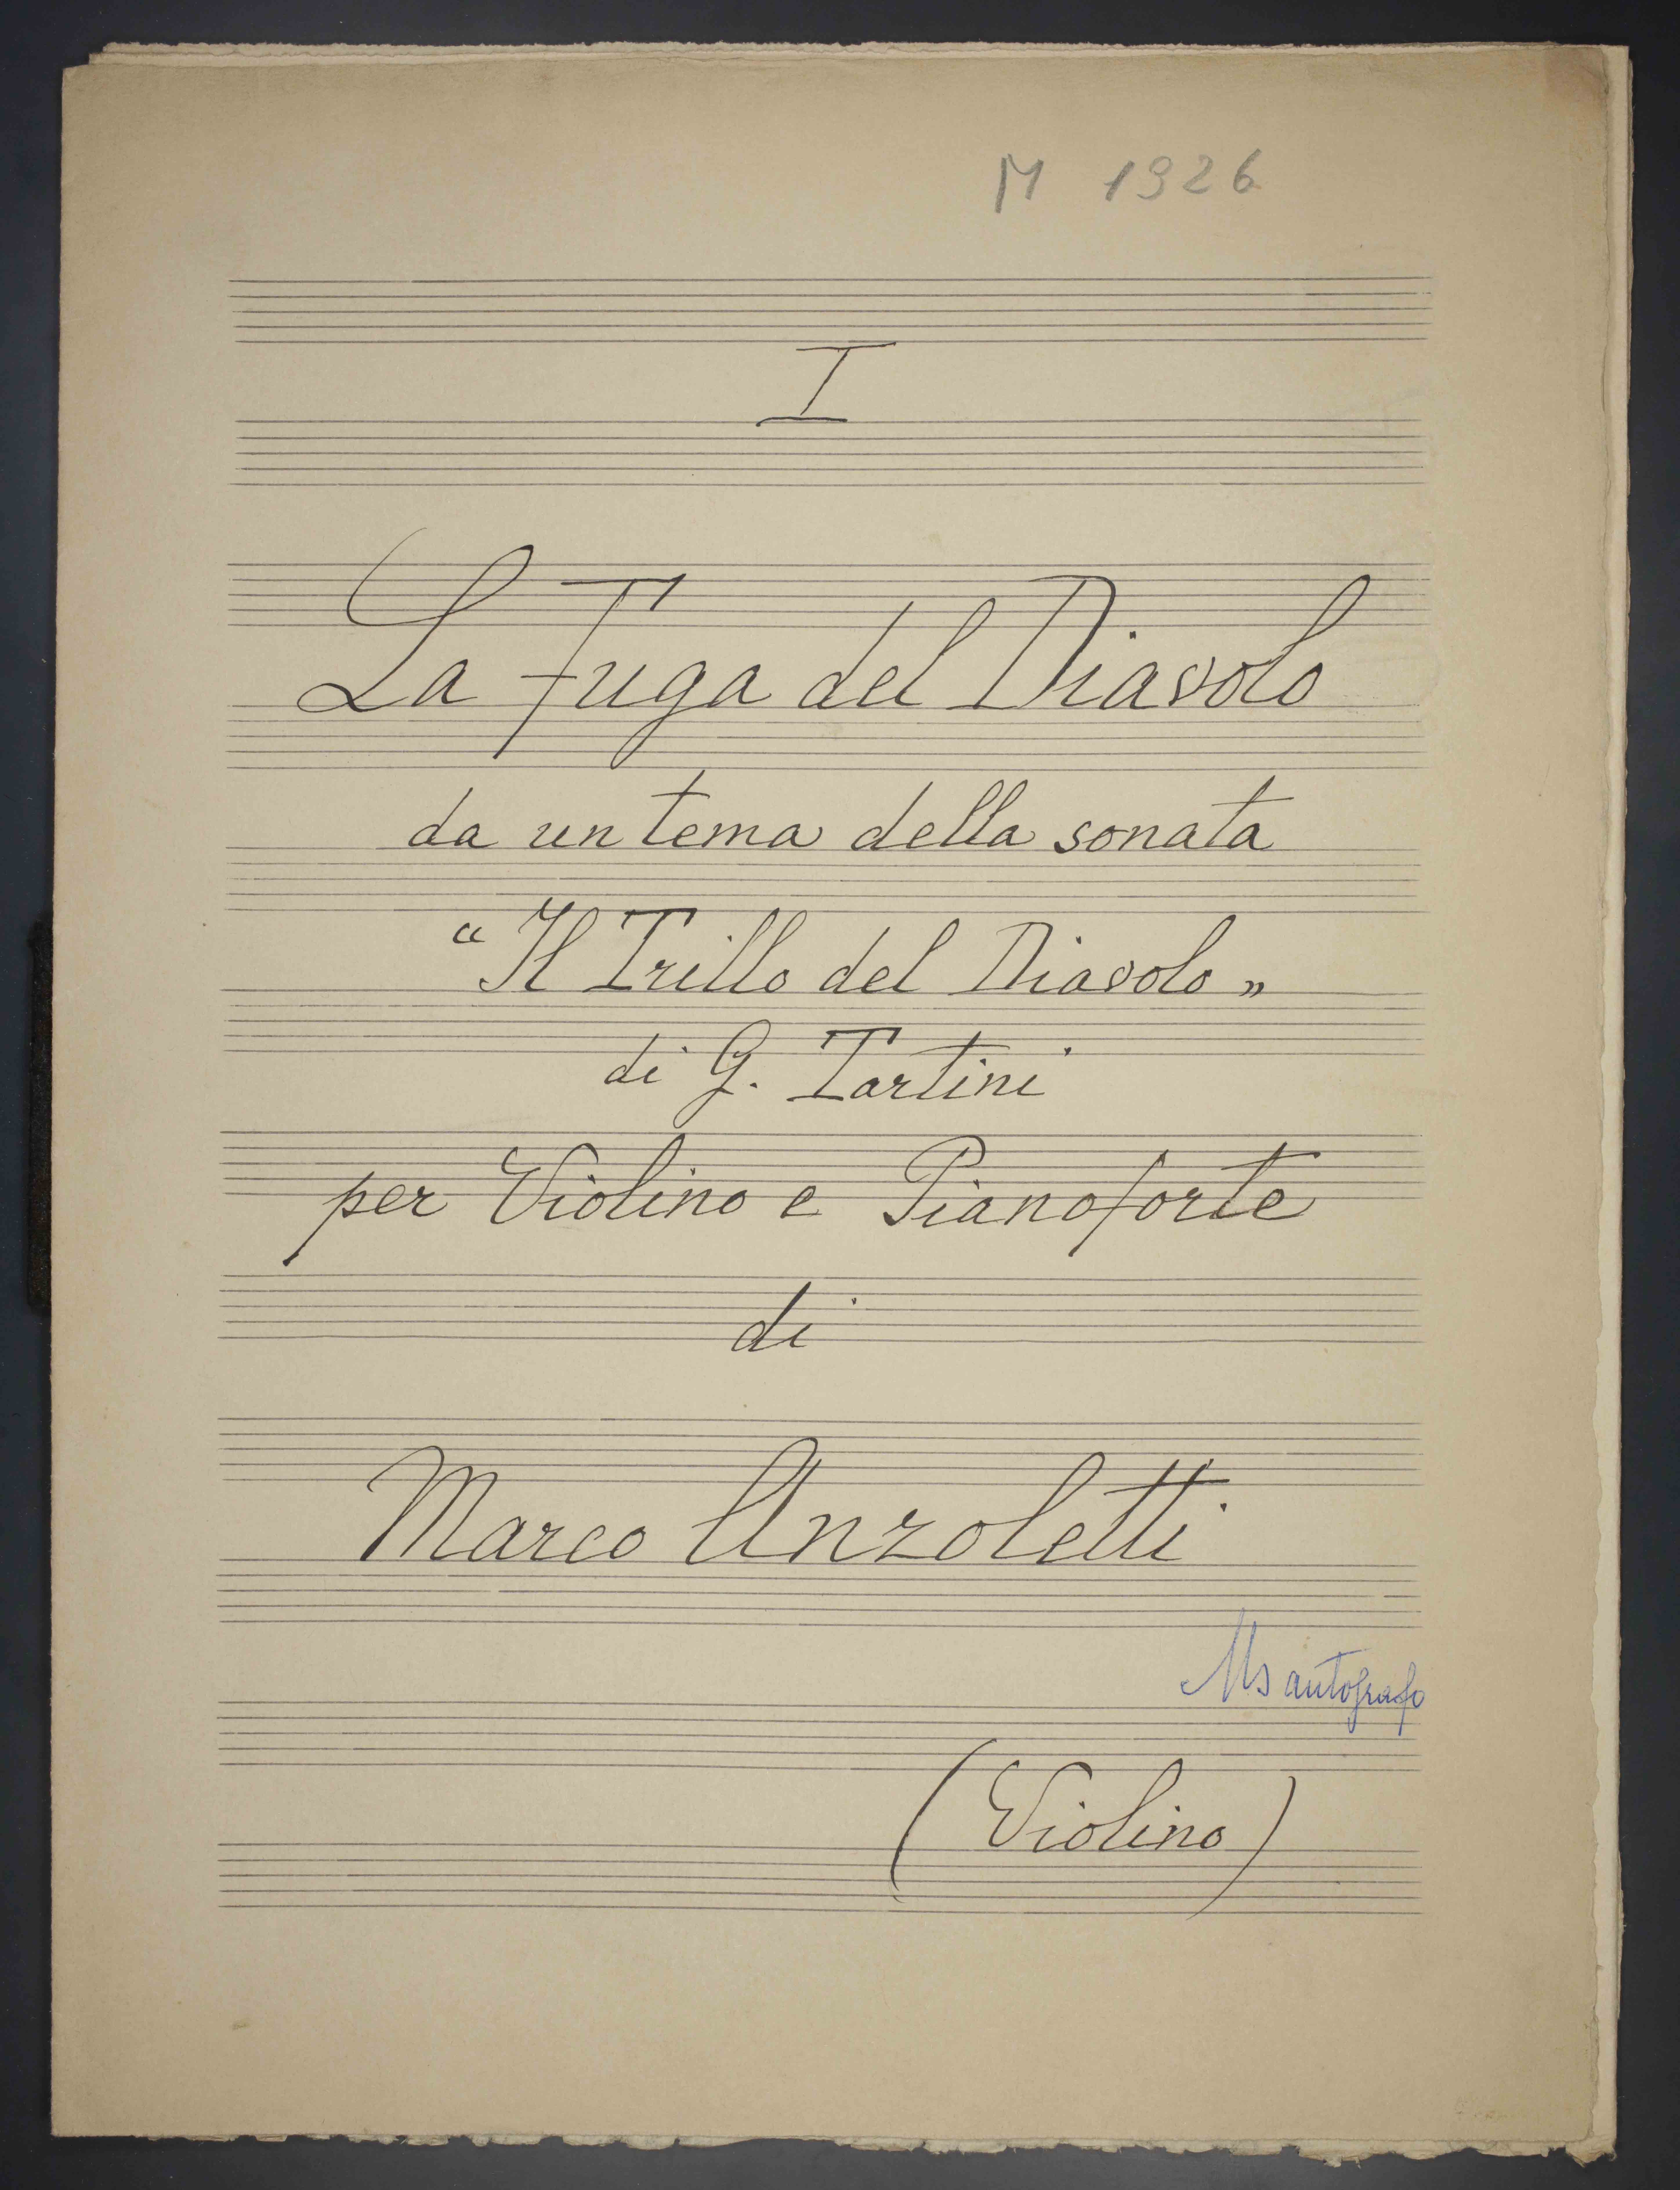 M 1926
I
La Fuga del Diavolo
da un tema della sonata
“Il Trillo del Diavolo„
di G. Tartini
per Violino e Pianoforte
di
Marco Anzoletti
Ms autografo
(Violino)